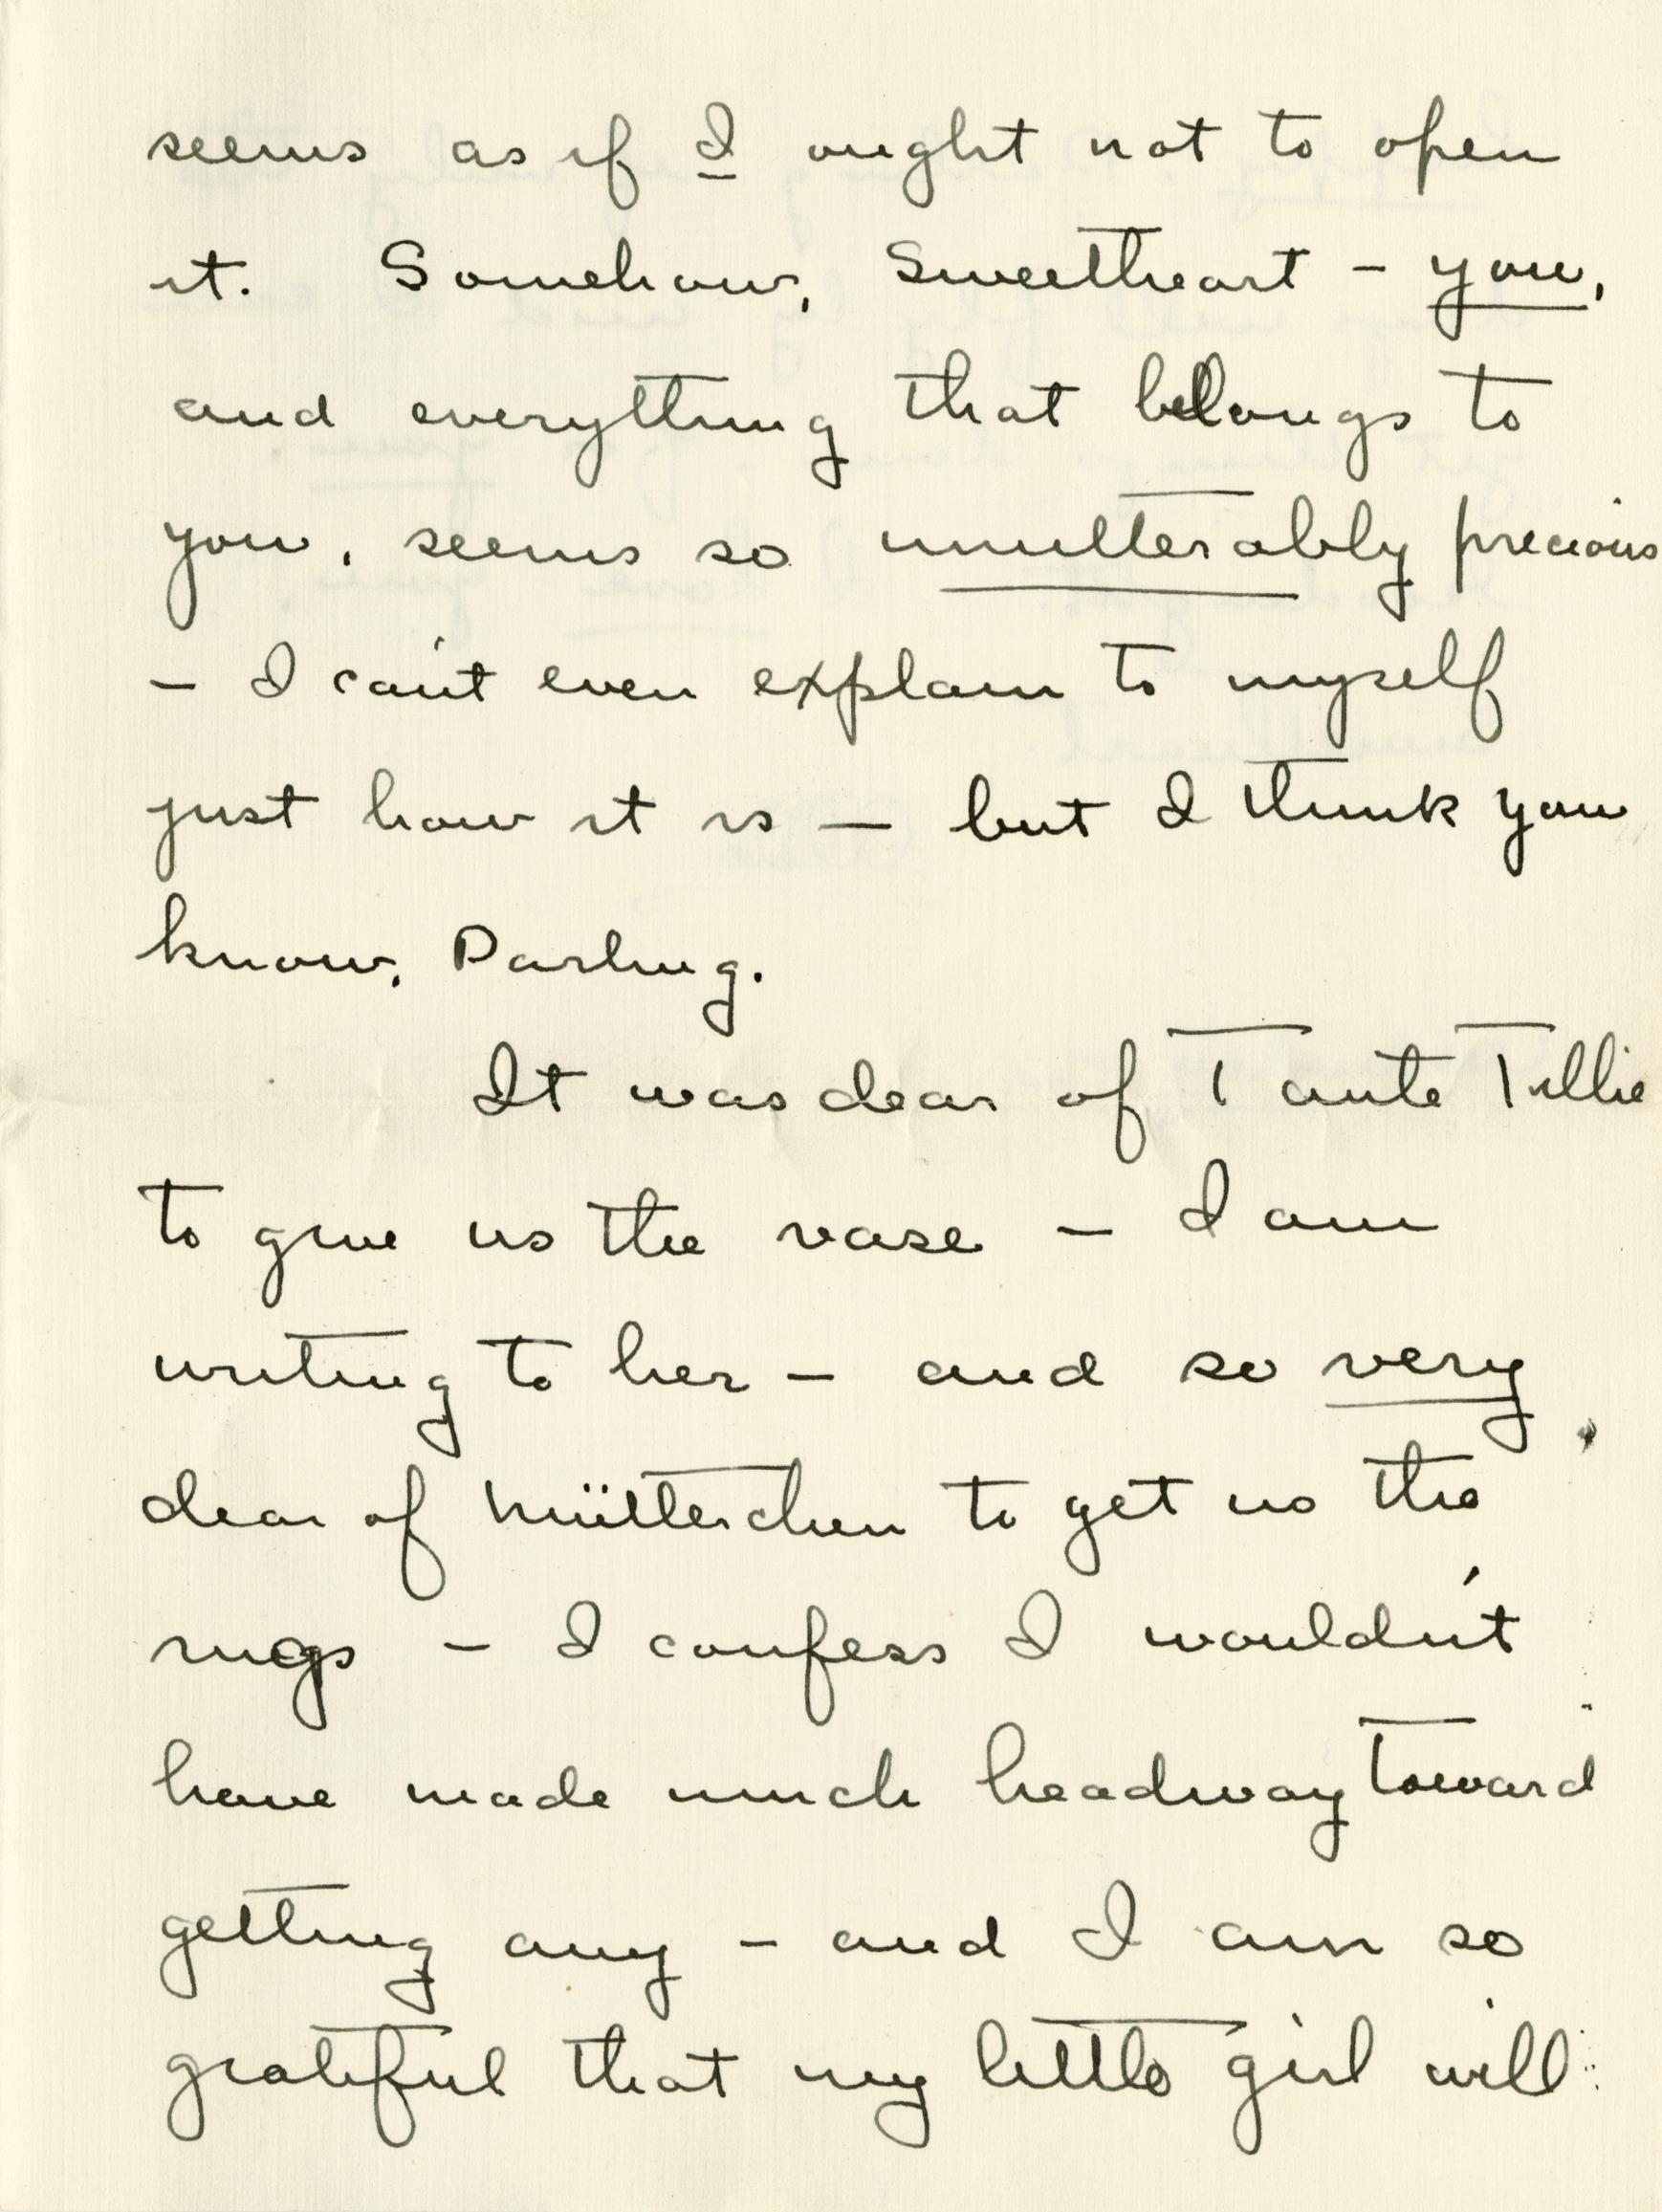 seems as if I ought not to open
it. Somehow, Sweetheart - you,
and everything that belongs to
you, seems so unutterably precious
- I can't even explain to myself
just how it is - but I think you
know, Darling.
It was dear of Tante Tillie
to give us the vase - I am
writing to her - and so very
dear of Mütterchen to get us the
rugs - I confess I wouldn't
have made much headway toward
getting any - and I am so
grateful that my little girl will